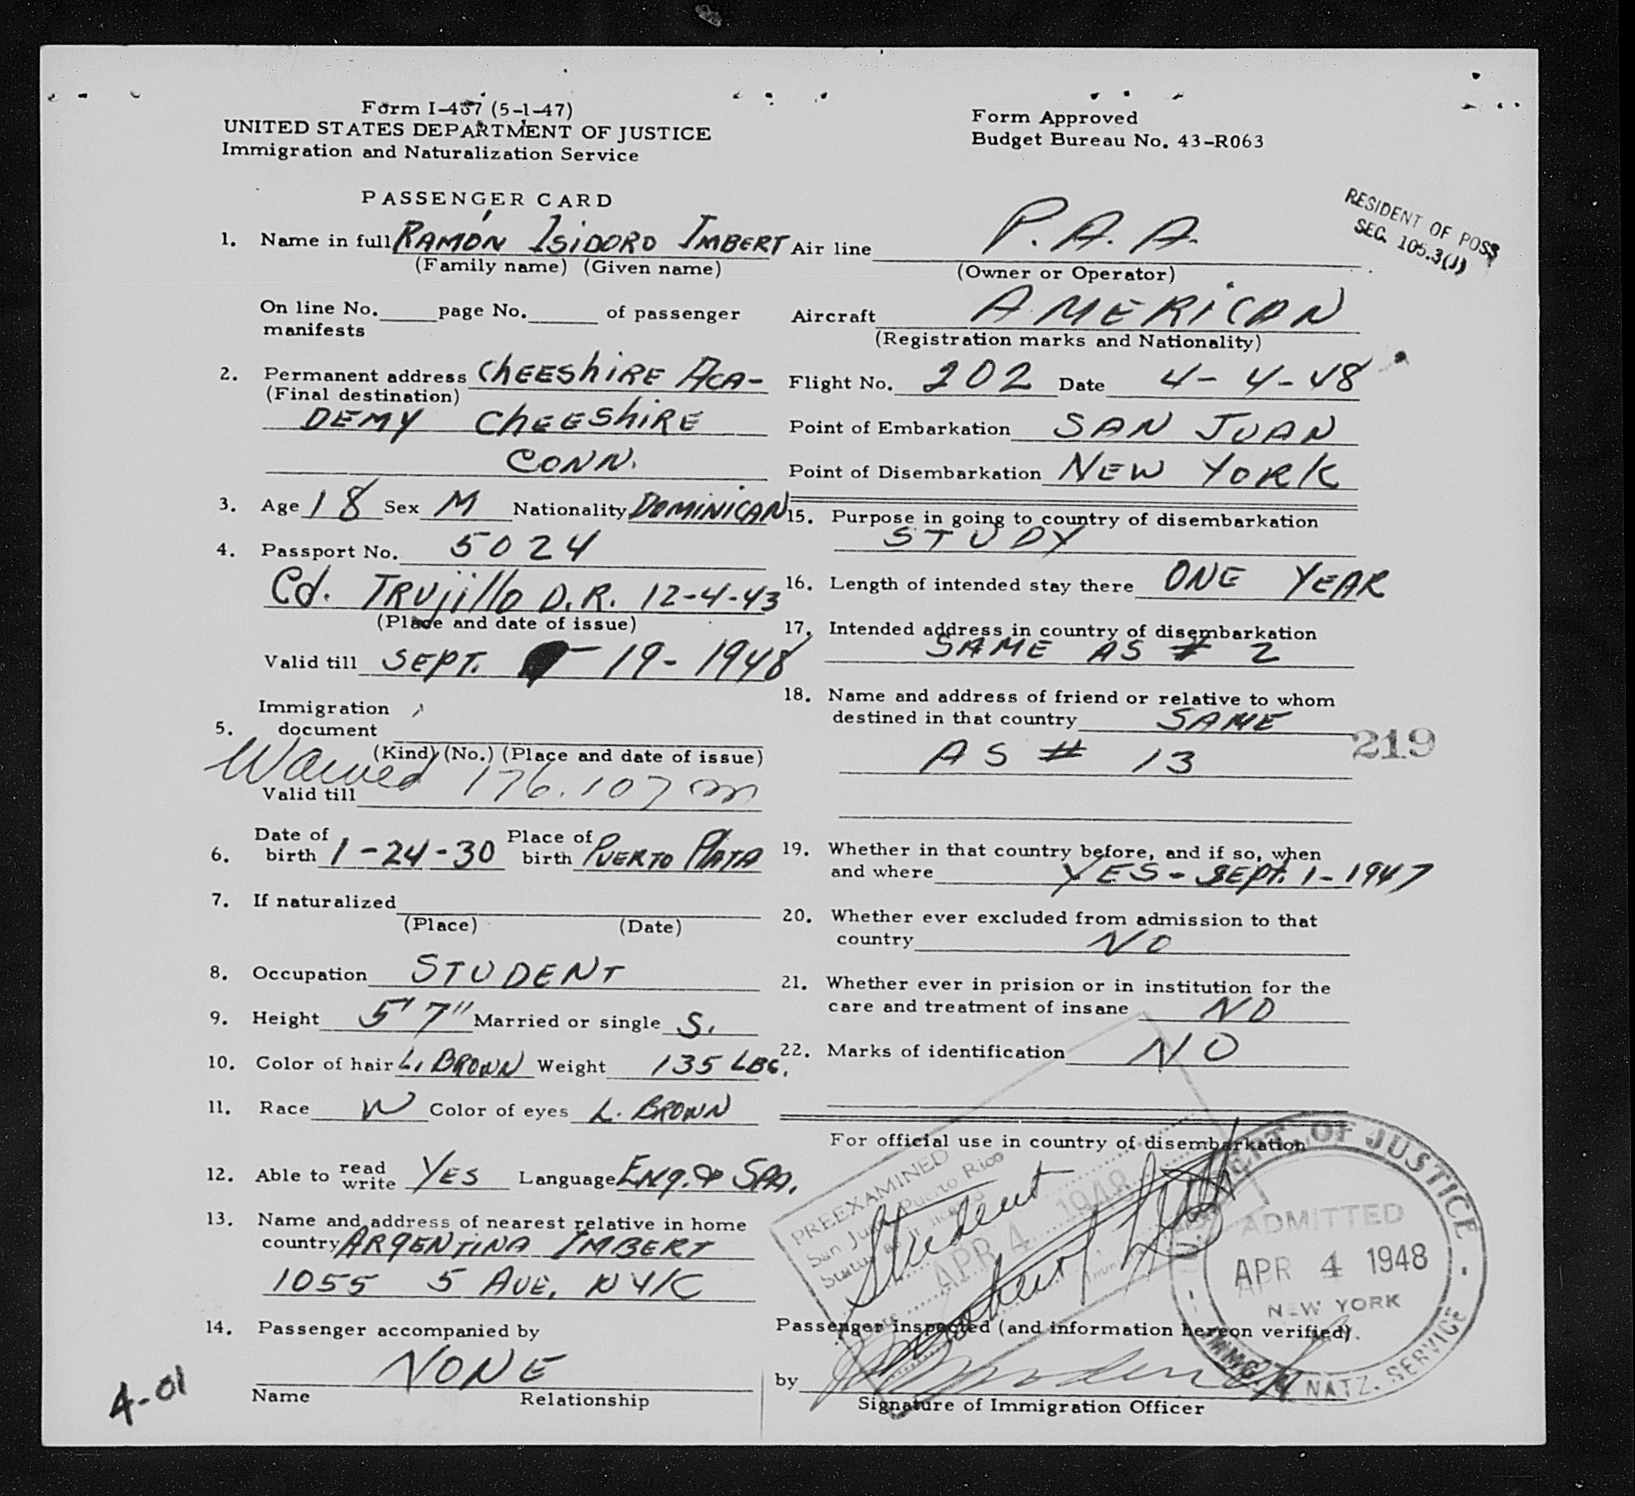 Form I-457 (5-1-47)
UNITED STATES DEPARTMENT OF JUSTICE
Immigration and Naturalization Service
Form Approved
Budget Bureau No. 43-R063
PASSENGER CARD
RESIDENT OF POSS
SEC. 105.3(J)
1. Name in full RAMÓN ISIDORO IMBERT
(Family name) (Given name)
On line No. page No. of passenger
manifests
2. Permanent address CHEESHIRE ACA-
(Final destination)
DEMY CHEESHIRE
CONN.
3. Age 18 Sex M Nationality DOMINICAN
4. Passport No. 5024
Cd. TRUjillo D.R. 12-4-43
(Place and date of issue)
Valid till SEPT. 19-1948
Immigration
5. document
(Kind) (No.) (Place and date of issue)
Waived 176.107 m
Valid till
6. Date of birth 1-24-30 Place of birth PUERTO PLATA
7. If naturalized
(Place) (Date)
8. Occupation STUDENT
9. Height 5' 7" Married or single S.
10. Color of hair L. BROWN Weight 135 LBS.
11. Race W Color of eyes L. BROWN
12. Able to read write YES Language ENG. & SPA.
13. Name and address of nearest relative in home
country ARGENTINA IMBERT
1055 5 AVE. NYK
14. Passenger accompanied by
NONE
Name Relationship
4-01
Air line P.A.A.
(Owner or Operator)
Aircraft AMERICAN
(Registration marks and Nationality)
Flight No. 202 Date 4-4-48
Point of Embarkation SAN JUAN
Point of Disembarkation NEW YORK
15. Purpose in going to country of disembarkation
STUDY
16. Length of intended stay there ONE YEAR
17. Intended address in country of disembarkation
SAME AS # 2
18. Name and address of friend or relative to whom
destined in that country SAME
AS # 13
219
19. Whether in that country before, and if so, when
and where YES - SEPT. 1-1947
20. Whether ever excluded from admission to that
country NO
21. Whether ever in prision or in institution for the
care and treatment of insane NO
22. Marks of identification NO
For official use in country of disembarkation
PREEXAMINED
San Juan Puerto Rico
Status
Student
APR 4 1948
OF JUSTICE
ADMITTED
APR 4 1948
NEW YORK
IMMG. & NATZ. SERVICE
Passenger inspected (and information hereon verified).
by
Signature of Immigration Officer